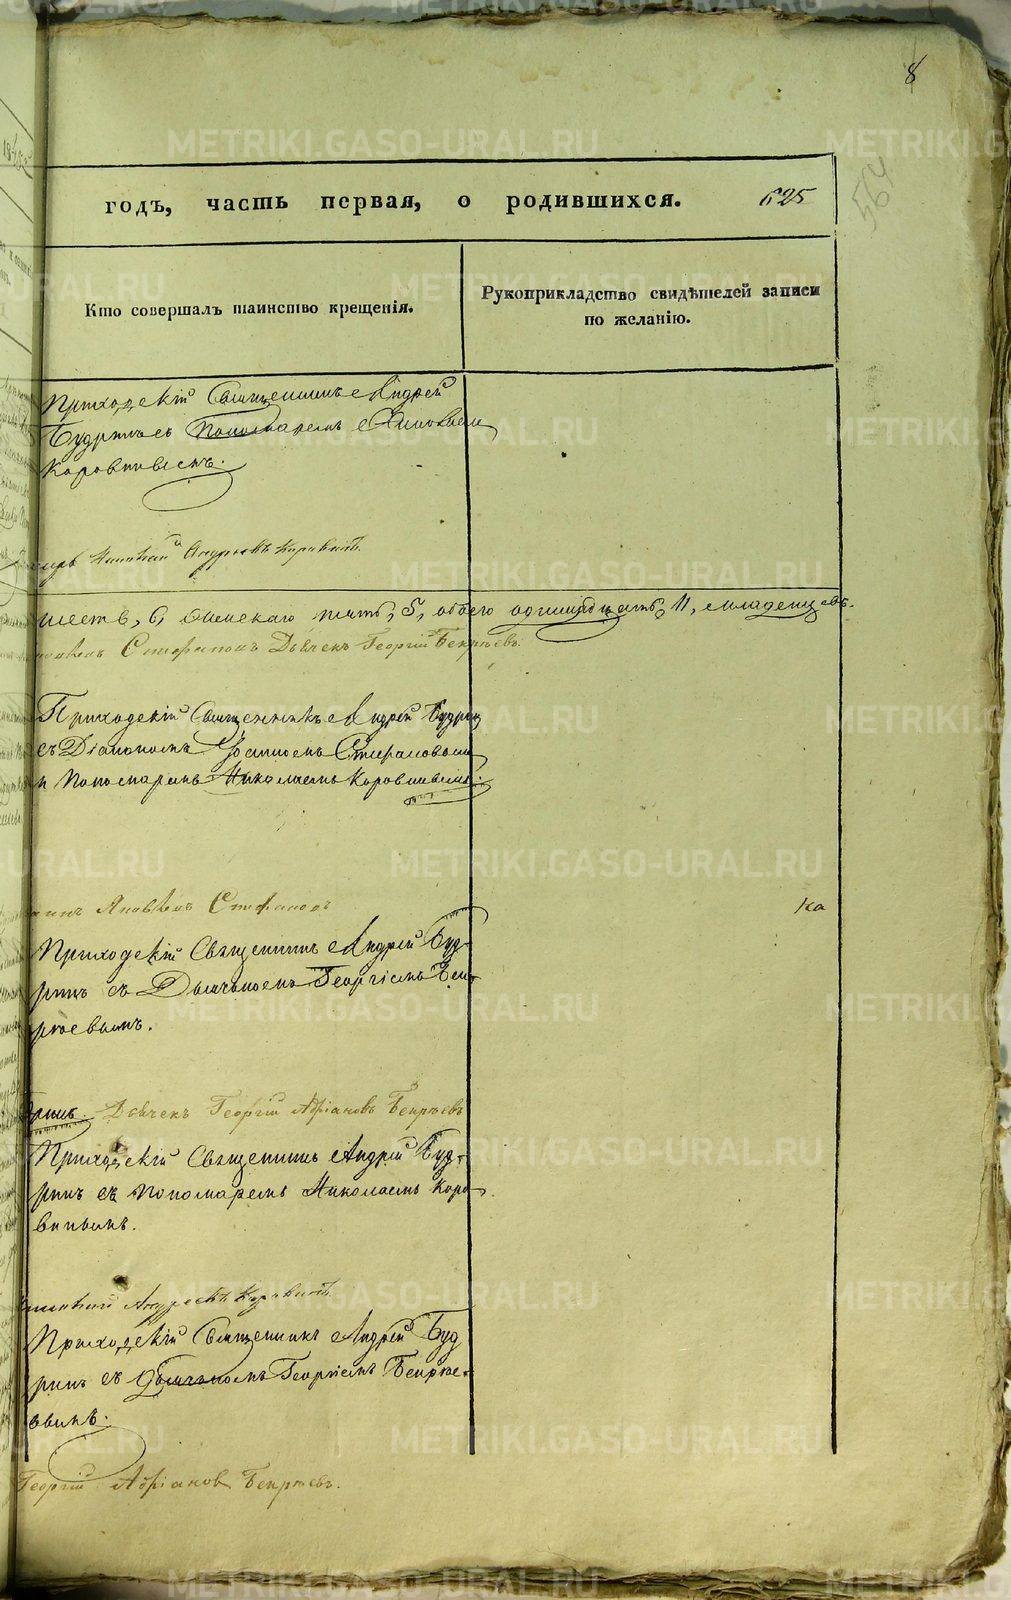 8
564
годъ, часть первая, о родившихся. 625
Кто совершалъ таинство крещенія.
Рукоприкладство свидѣтелей записи
по желанію.
Приходскій Священникъ Андрей
Будринъ съ Пономаремъ Николаемъ
Коровинымъ.
Николай Андреевъ Коровинъ
шесть, 6, женскаго пять, 5, обоего одиннадцать, 11, младенцевъ.
Стефановъ Дьячекъ Георгій Бекрѣевъ.
Приходскій Священникъ Андрей Будринъ
съ Діакономъ Іоанномъ Стефановымъ
и Пономаремъ Николаемъ Коровинымъ.
Яковлевъ Стефановъ
Приходскій Священникъ Андрей Буд-
ринъ съ Дьячкомъ Георгіемъ Бек-
рѣевымъ.
Дьячекъ Георгій Адріановъ Бекрѣевъ
Приходскій Священникъ Андрей Буд-
ринъ съ Пономаремъ Николаемъ Коро-
винымъ.
Николай Андреевъ Коровинъ
Приходскій Священникъ Андрей Буд
ринъ съ Дьячкомъ Георгіемъ Бекрѣе-
вымъ.
Георгій Адріановъ Бекрѣевъ.
METRIKI.GASO-URAL.RU